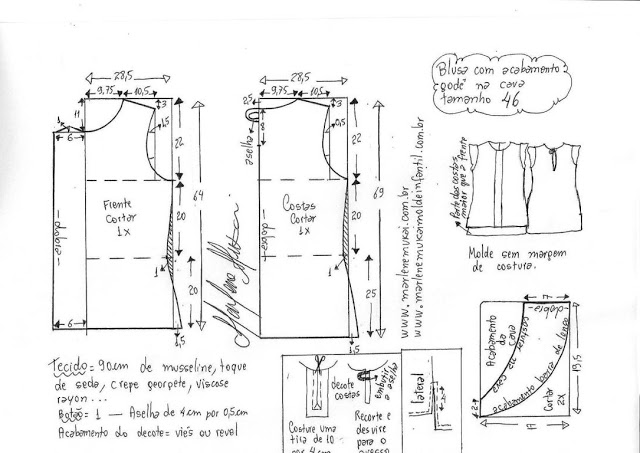 Blusa com acabamento
godê na cava
tamanho 46
28,5
9,75
10,5
3
11
1
6
1,5
22
64
20
Frente
Cortar
1x
dobra
1
20
6
1,5
28,5
9,75
10,5
2,5
3
8
aselha
22
69
20
Costas
Cortar
1x
dobra
1
25
1,5
www.marlenemukai.com.br
www.marlenemukaimoldeinfantil.com.br
Parte das costas
maior que a frente
Molde sem margem
de costura.
Tecido = 90cm de musseline, toque
de seda, crepe georgete, viscose
rayon...
Botão = 1 — Aselha de 4cm por 0,5cm
Acabamento do decote = viés ou revel
decote
costas
Embutir
a aselha
Costure uma
tira de 10
por 4cm
Recorte e
desvire
para o
avesso
lateral
Acabamento
da
Cava
dobra
costurar
acabamento barra de lenço
Cortar
2x
19,5
2
17